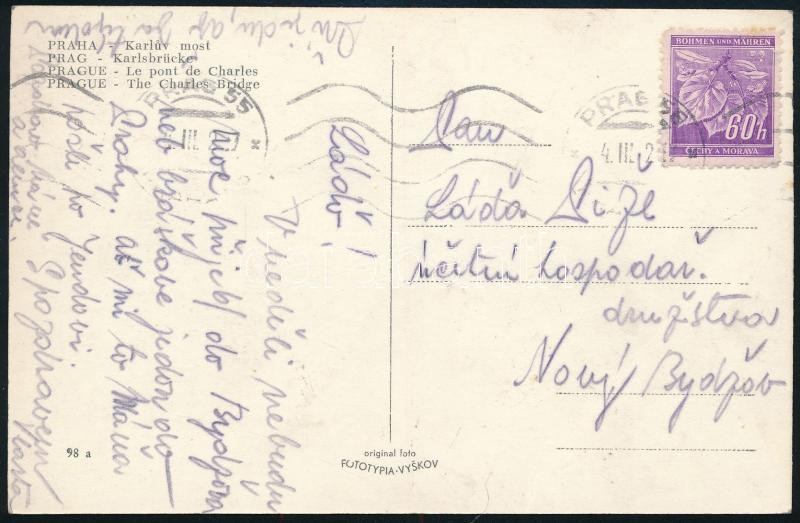 PRAHA - Karlův most
PRAG - Karlsbrücke
PRAGUE - Le pont de Charles
PRAGUE - The Charles Bridge
Láďo!
V neděli nebudu
moc přijet do Bydžova
neb bráškové jedou do
Prahy. až mi to Máňa
pošli po Jendovi.
S pozdravem
Vlasta
98 a
original foto
FOTOTYPIA-VYŠKOV
BÖHMEN UND MÄHREN
60h
ČECHY A MORAVA
PRAG 55
4. III.
Pan
Láďa Píže
účetní hospodář.
družstva
Nový Bydžov